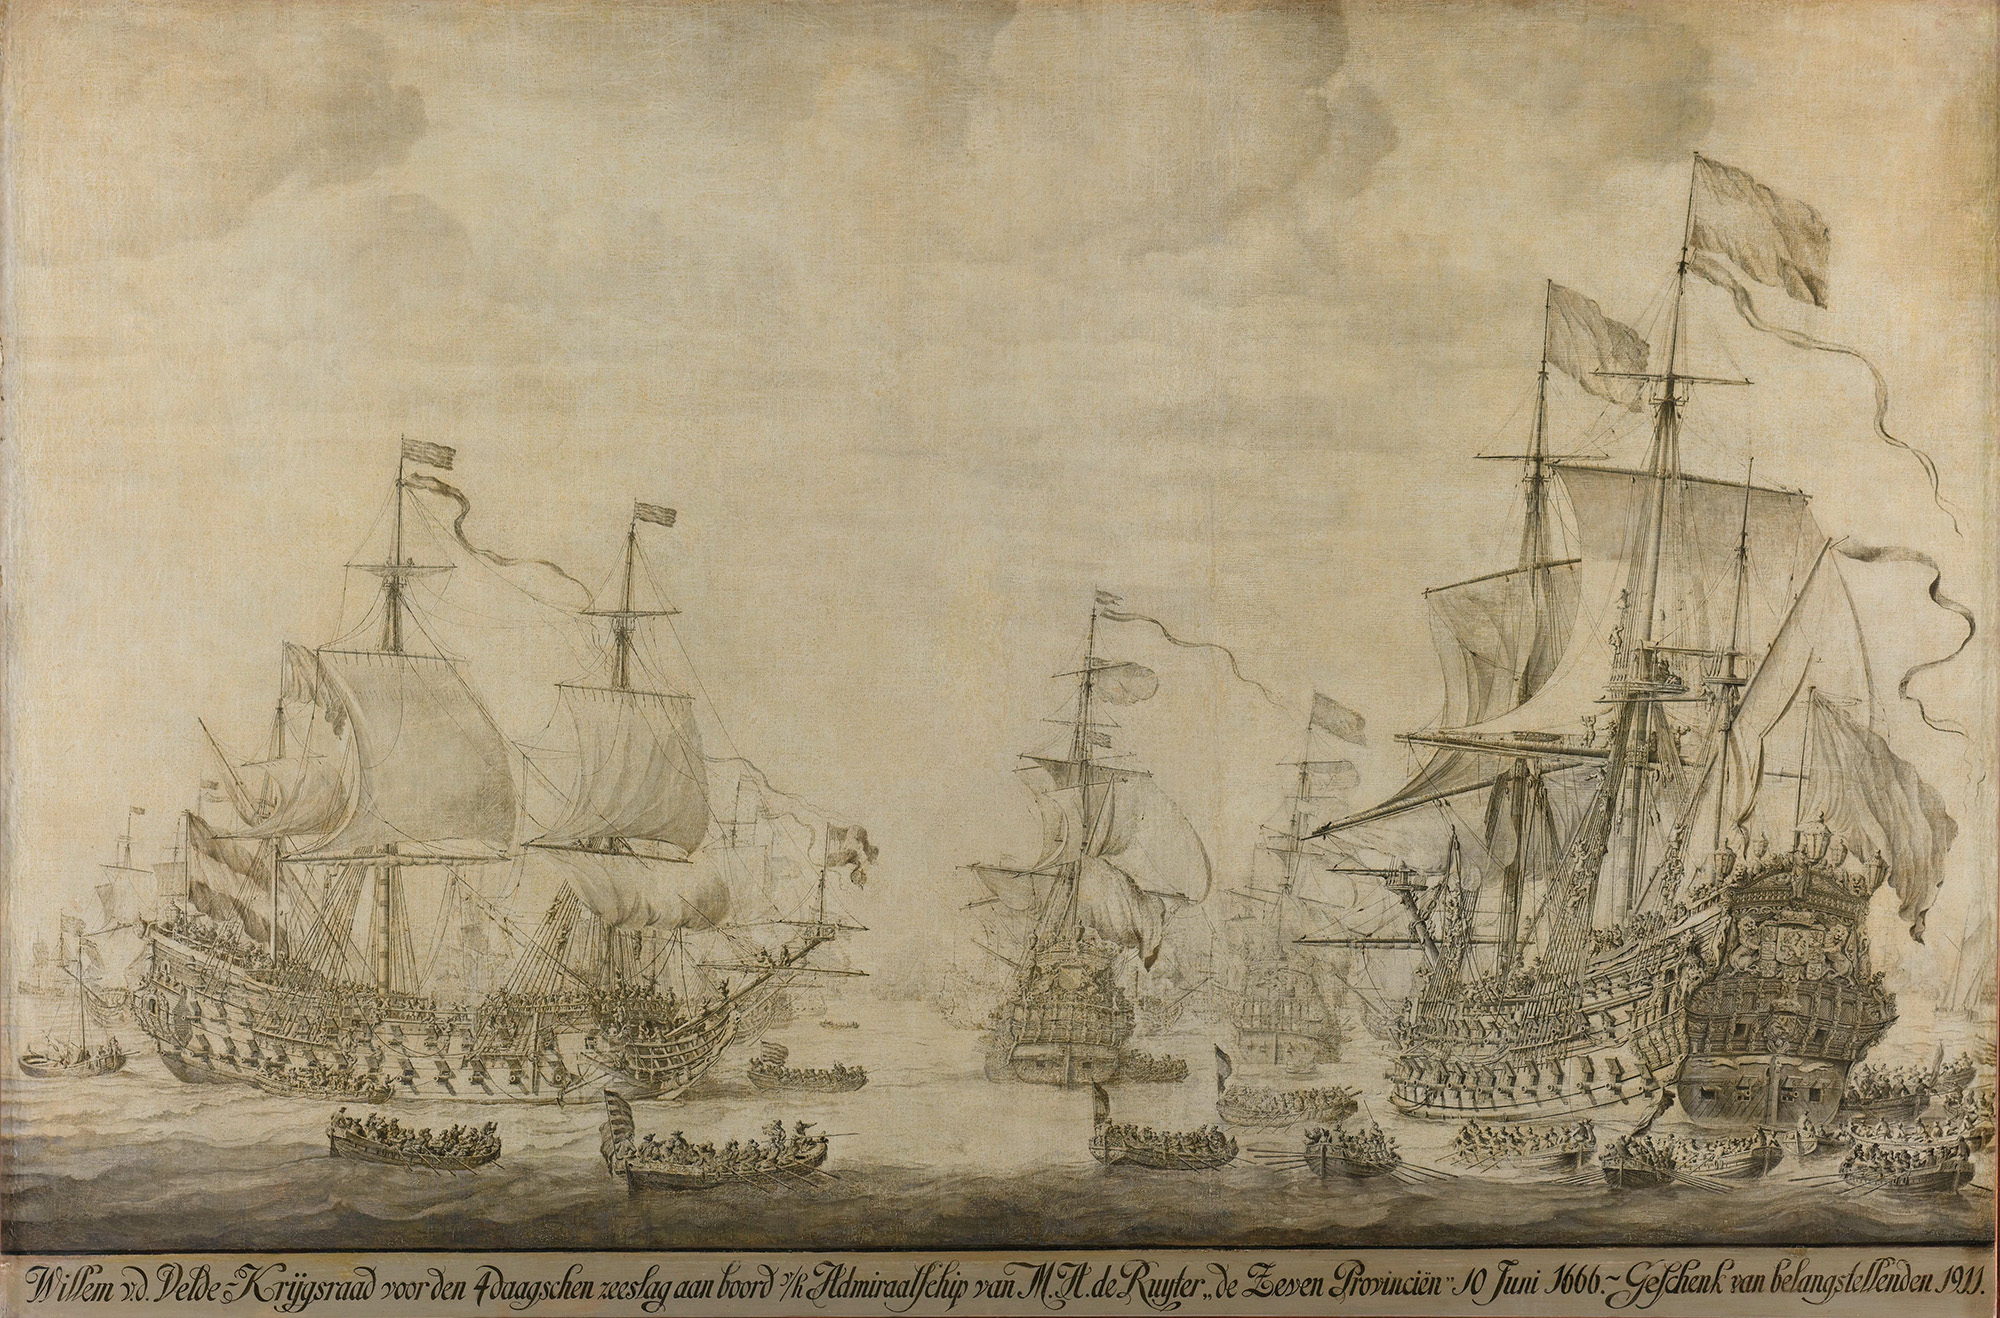 Willem v.d. Velde - Krijgsraad voor den 4daagschen zeeslag aan boord v/h Admiraalschip van M.A. de Ruyter „de Zeven Provinciën” 10 Juni 1666. ~ Geschenk van belangstellenden 1911.